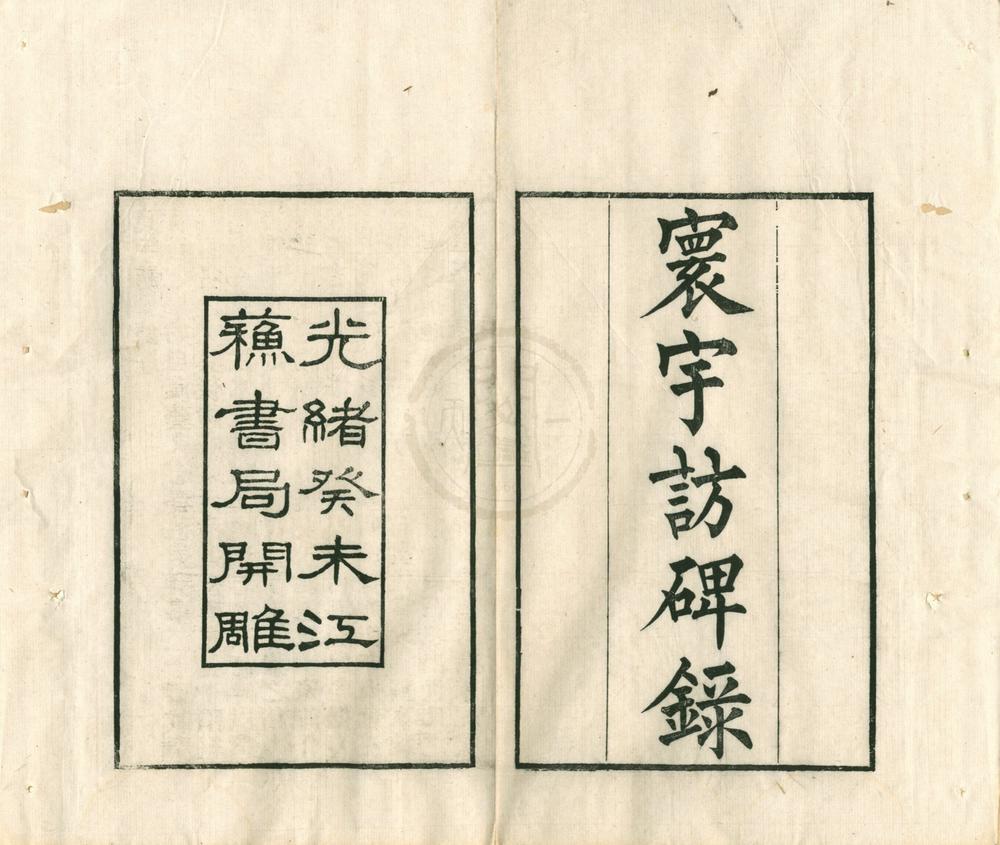 寰宇訪碑錄
光緒癸未江
蘓書局開雕